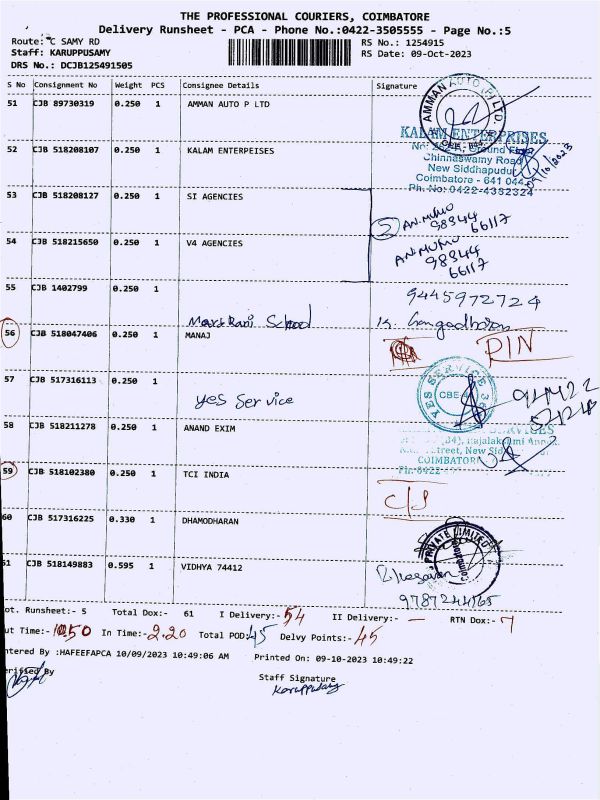 THE PROFESSIONAL COURIERS, COIMBATORE
Delivery Runsheet - PCA - Phone No.:0422-3505555 - Page No.:5
Route: C SAMY RD
RS No.: 1254915
Staff: KARUPPUSAMY
RS Date: 09-Oct-2023
DRS No.: DCJB125491505
S No Consignment No Weight PCS Consignee Details Signature
51 CJB 89730319 0.250 1 AMMAN AUTO P LTD
AMMAN AUTO (P) LTD
52 CJB 518208107 0.250 1 KALAM ENTERPEISES
KALAM ENTERPRISES
Ground
Chinnaswamy Road
New Siddhapudur
Coimbatore - 641 044
Ph. No: 0422-4332324
09/10/2023
53 CJB 518208127 0.250 1 SI AGENCIES
2 98344
66117
54 CJB 518215650 0.250 1 V4 AGENCIES
98344
66117
55 CJB 1402799 0.250 1
9445972724
School
56 CJB 518047406 0.250 1 MANAJ
RIN
57 CJB 517316113 0.250 1
yes Service
YES SERVICE
CBE
94422
58 CJB 518211278 0.250 1 ANAND EXIM
COIMBATORE
59 CJB 518102380 0.250 1 TCI INDIA
60 CJB 517316225 0.330 1 DHAMODHARAN
PRIVATE LIMITED
61 CJB 518149883 0.595 1 VIDHYA 74412
9787244765
ot. Runsheet:- 5 Total Dox:- 61 I Delivery:- 54 II Delivery:- — RTN Dox:- 7
ut Time:- 1050 In Time:- 2.20 Total POD: 45 Delvy Points:- 45
ntered By :HAFEEFAPCA 10/09/2023 10:49:06 AM Printed On: 09-10-2023 10:49:22
erified By
Staff Signature
Karuppusamy